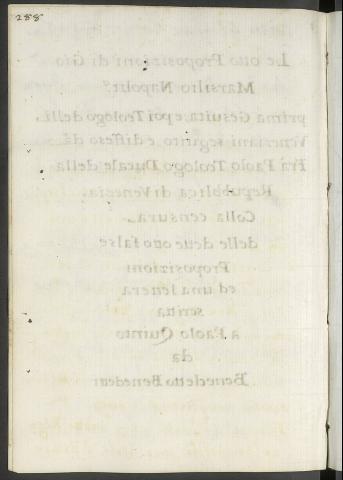 288
Le otto Proposizioni di Gio
Marsilio Napolit.
prima Gesuita, e poi Teologo delli
Veneziani seguito, e difeso da
Frà Paolo Teologo Ducale della
Repubblica di Venezia.
Colla censura
delle dette otto false
Proposizioni
ed una lettera
scritta
a Paolo Quinto
da
Benedetto Benedetti